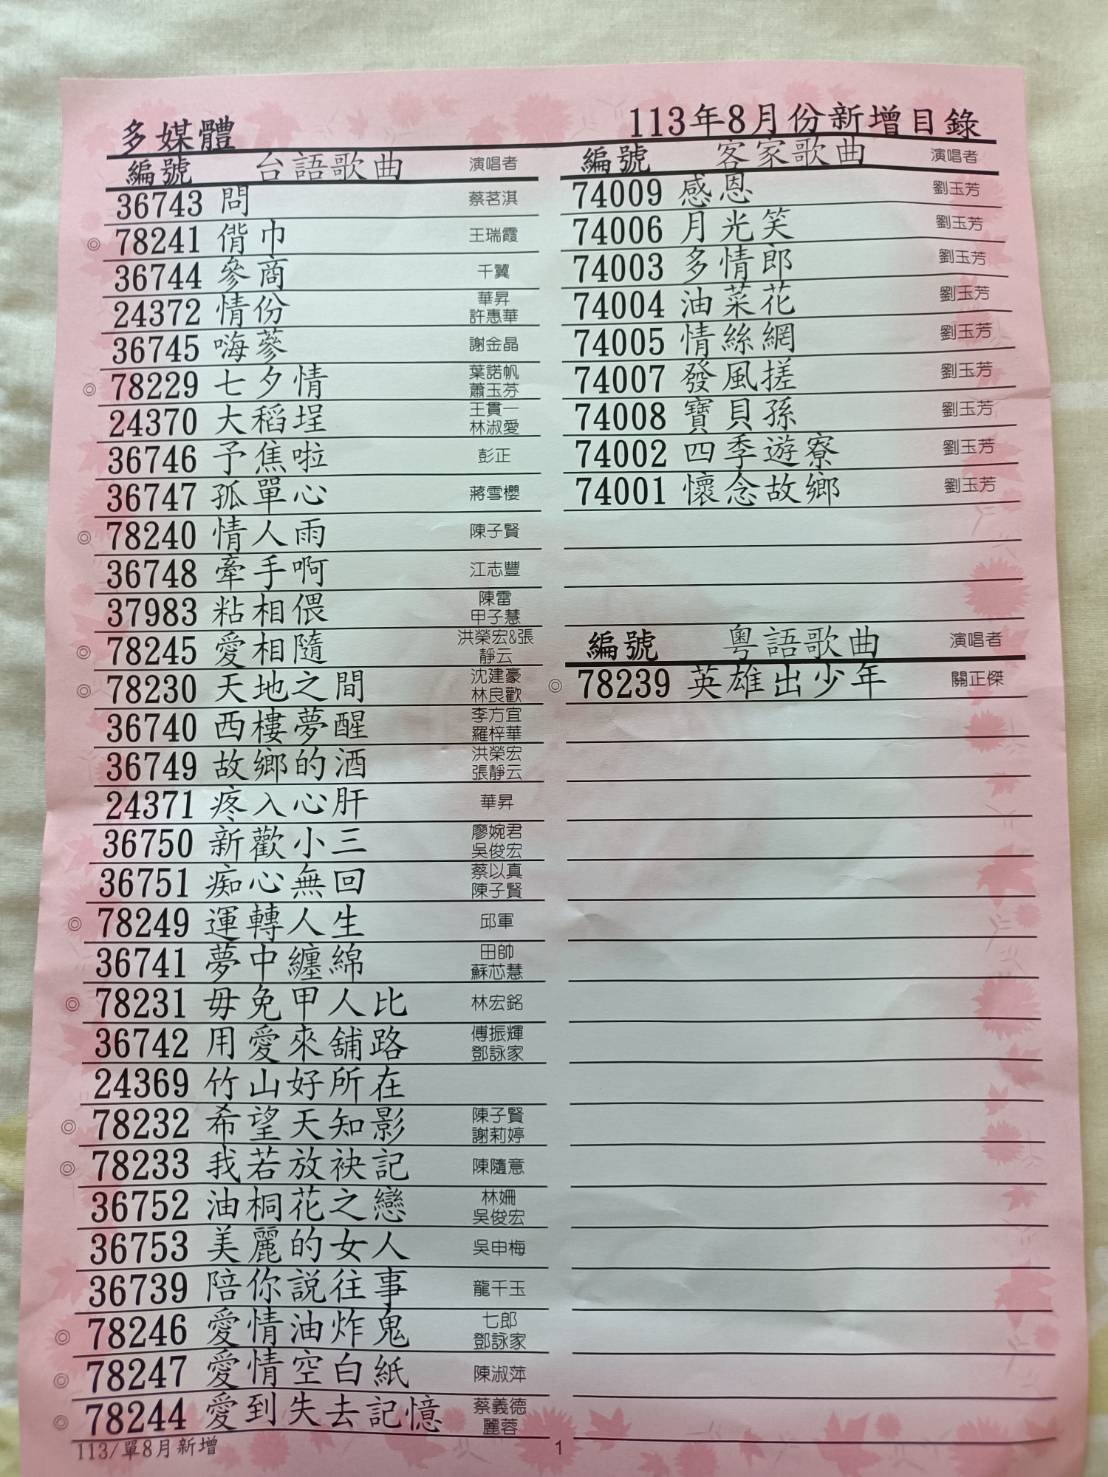 多媒體
113年8月份新增目錄
編號 台語歌曲 演唱者
36743 問 蔡茗淇
◎ 78241 偕巾 王瑞霞
36744 參商 千翼
24372 情份 華昇 許惠華
36745 嗨蔘 謝金晶
◎ 78229 七夕情 葉諾帆 蕭玉芬
24370 大稻埕 王貫一 林淑愛
36746 予焦啦 彭正
36747 孤單心 蔣雪櫻
◎ 78240 情人雨 陳子賢
36748 牽手啊 江志豐
37983 粘相偎 陳雷 甲子慧
◎ 78245 愛相隨 洪榮宏&張靜云
◎ 78230 天地之間 沈建豪 林良歡
36740 西樓夢醒 李方宜 羅梓華
36749 故鄉的酒 洪榮宏 張靜云
24371 疼入心肝 華昇
36750 新歡小三 廖婉君 吳俊宏
36751 痴心無回 蔡以真 陳子賢
◎ 78249 運轉人生 邱軍
36741 夢中纏綿 田帥 蘇芯慧
◎ 78231 毋免甲人比 林宏銘
36742 用愛來舖路 傅振輝 鄧詠家
24369 竹山好所在
◎ 78232 希望天知影 陳子賢 謝莉婷
◎ 78233 我若放袂記 陳隨意
36752 油桐花之戀 林姍 吳俊宏
36753 美麗的女人 吳申梅
36739 陪你說往事 龍千玉
◎ 78246 愛情油炸鬼 七郎 鄧詠家
◎ 78247 愛情空白紙 陳淑萍
◎ 78244 愛到失去記憶 蔡義德 麗蓉
編號 客家歌曲 演唱者
74009 感恩 劉玉芳
74006 月光笑 劉玉芳
74003 多情郎 劉玉芳
74004 油菜花 劉玉芳
74005 情絲網 劉玉芳
74007 發風搓 劉玉芳
74008 寶貝孫 劉玉芳
74002 四季遊寮 劉玉芳
74001 懷念故鄉 劉玉芳
編號 粵語歌曲 演唱者
◎ 78239 英雄出少年 關正傑
113/單8月新增
1